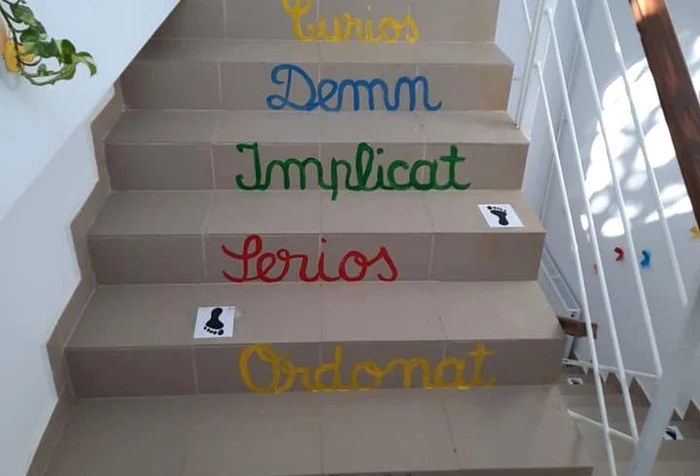 Curios
Demn
Implicat
Serios
Ordonat